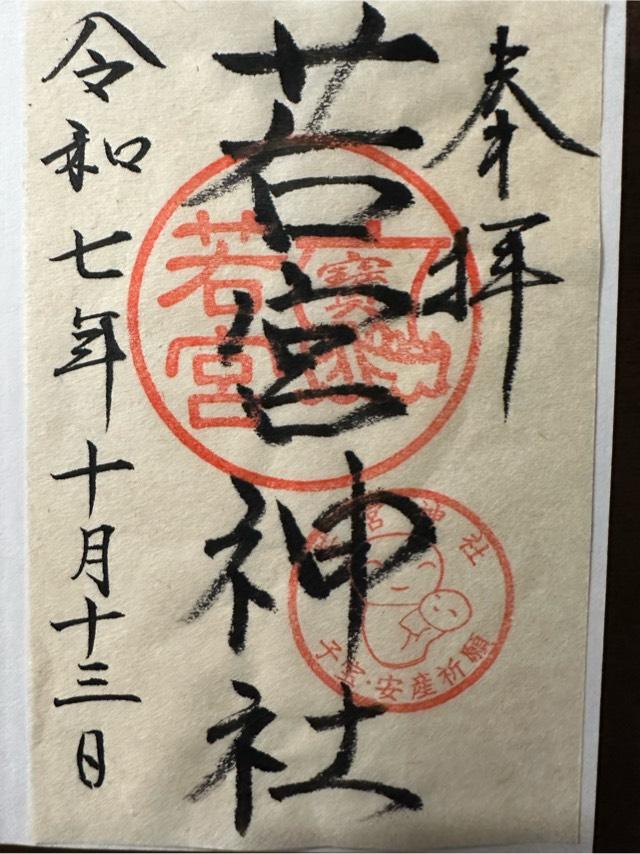 奉拝
若宮神社
令和七年十月十三日
若宮
寳
宮神社
子宝・安産祈願